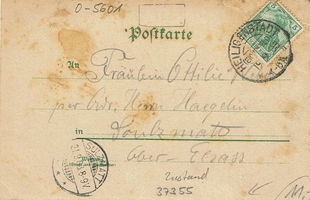 0-5601
Postkarte
An
Fräulein Ottilie
per Adr. Herrn Haegelin
Soulzmatt
Ober-Elsass
Zustand
37355